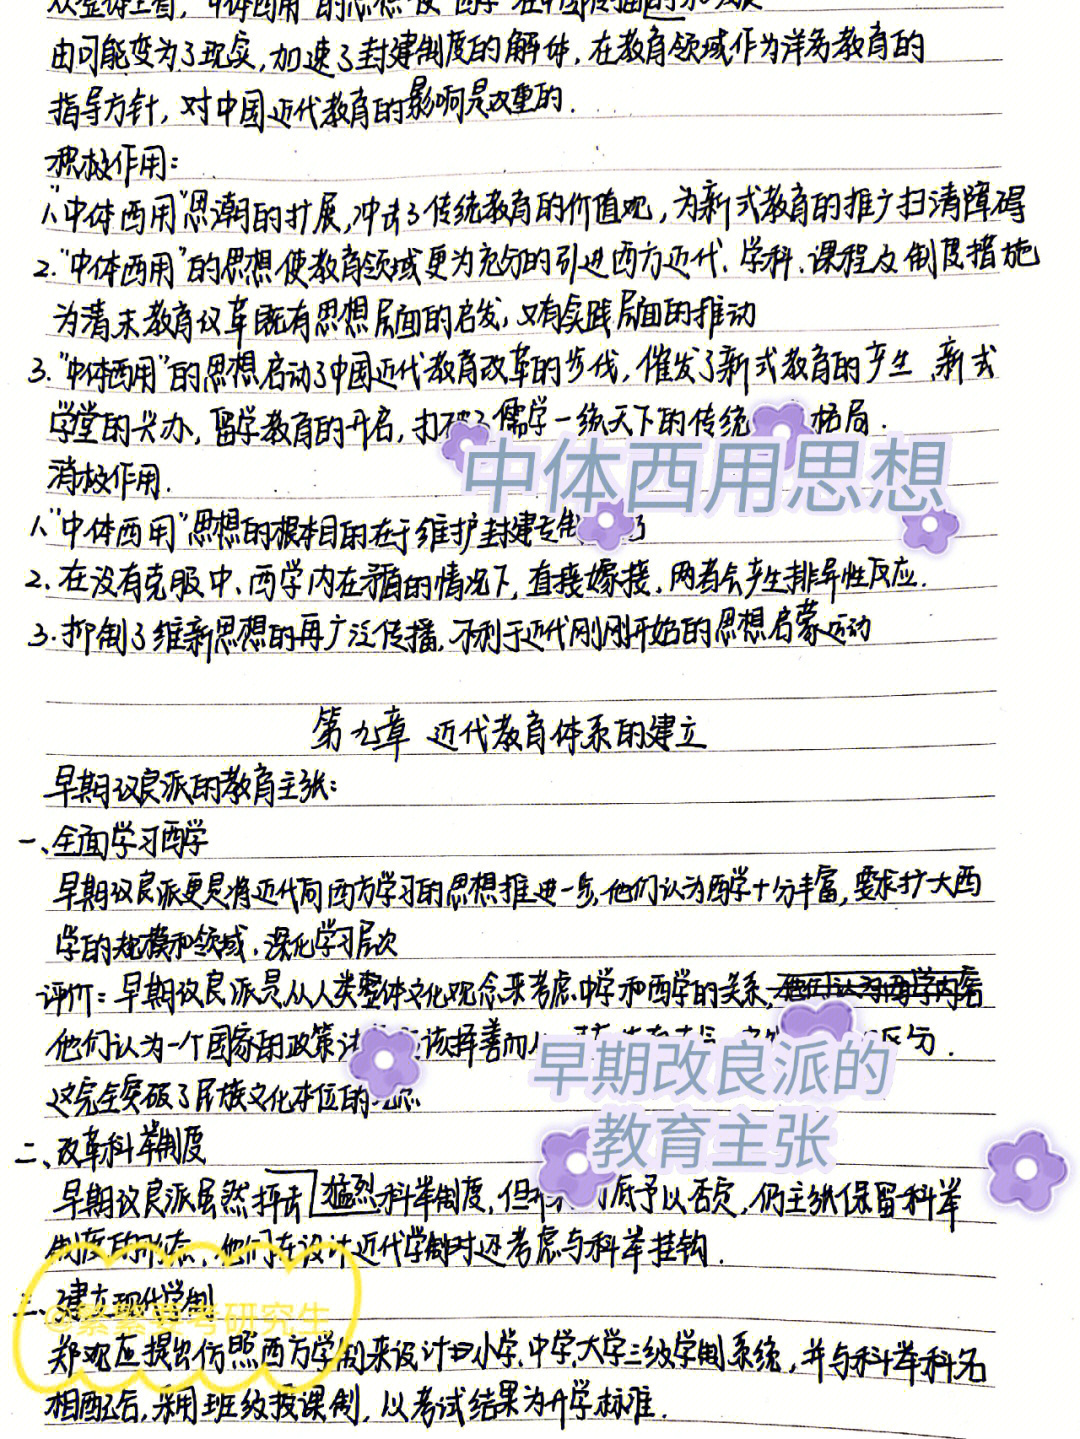 从整体上看，"中体西用"的思想使"西学"在中国传播的
由可能变为了现实，加速了封建制度的解体，在教育领域作为洋务教育的
指导方针，对中国近代教育的影响是双重的．
积极作用：
1、"中体西用"思潮的扩展，冲击了传统教育的价值观，为新式教育的推广扫清障碍
2."中体西用"的思想使教育领域更为充分的引进西方近代、学科、课程及制度措施
为清末教育改革既有思想层面的启发，又有实践层面的推动
3."中体西用"的思想启动了中国近代教育改革的步伐，催发了新式教育的产生、新式
学堂的兴办，留学教育的开启，打破了儒学一统天下的传统 格局．
中体西用思想
消极作用．
1、"中体西用"思想的根本目的在于维护封建专制
2.在没有克服中、西学内在矛盾的情况下，直接嫁接，两者会产生排异性反应．
3.抑制了维新思想的再广泛传播，不利于近代刚刚开始的思想启蒙运动
第九章 近代教育体系的建立
早期改良派的教育主张：
一、全面学习西学
早期改良派更是将近代向西方学习的思想推进一步，他们认为西学十分丰富，要求扩大西
学的规模和领域，深化学习层次
评价：早期改良派是从人类整体文化观念来考虑中学和西学的关系，他们认为西学内容
他们认为一个国家的政策 该择善而 分．
早期改良派的
教育主张
这完全突破了民族文化本位的
二、改革科举制度
早期改良派虽然抨击猛烈科举制度，但 底予以否定，仍主张保留科举
制度的形态，他们在设计近代学制时还考虑与科举挂钩．
三、建立现代学制
@繁繁要考研究生
郑观应提出仿照西方学制来设计由小学、中学、大学三级学制系统，并与科举科名
相配合，采用班级授课制，以考试结果为升学标准．